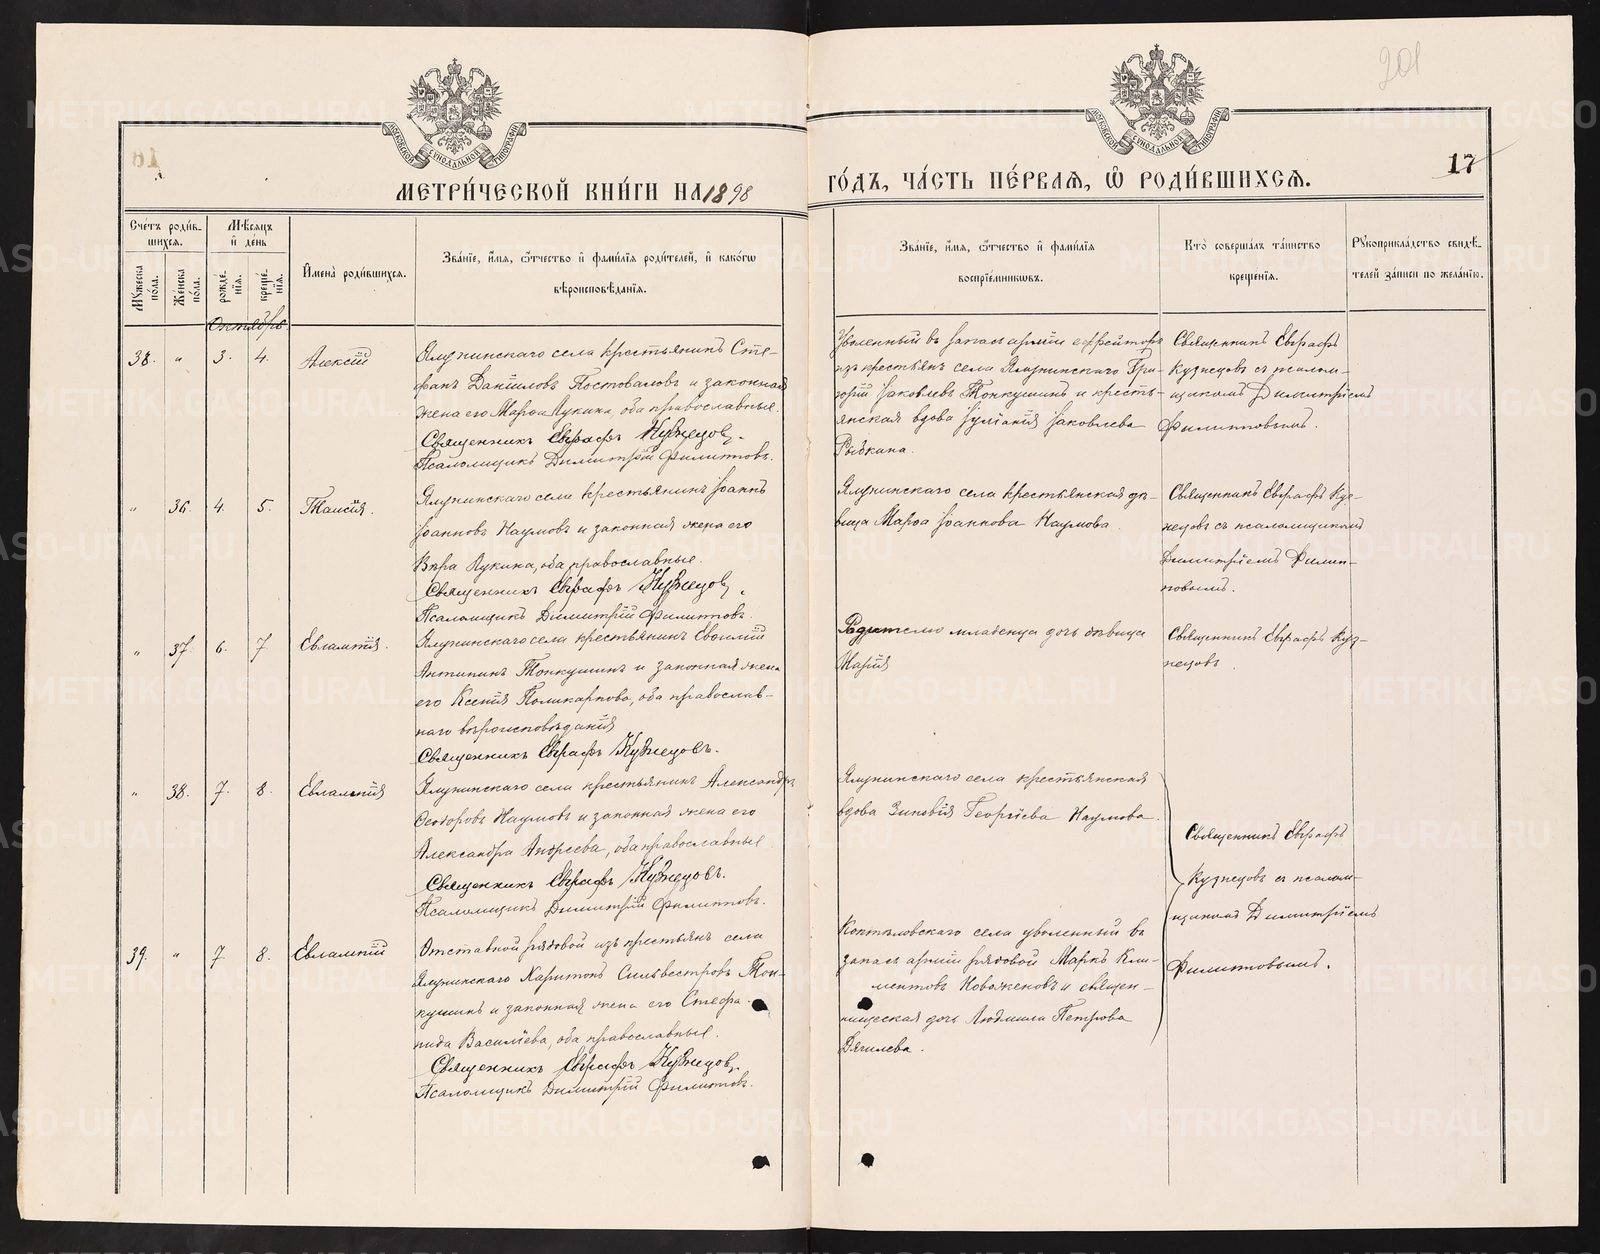 201
17
МЕТРИ́ЧЕСКОЙ КНИ́ГИ НА 1898
ГО́ДЪ, ЧА́СТЬ ПЕ́РВАЯ, Ѡ РОДИ́ВШИХСЯ.
Сче́тъ роди́в-
шихся.
Мѣ́сяцъ
и҆ де́нь
Му́жеска по́ла.
Же́нска по́ла.
рожде́нїѧ.
креще́нїѧ.
И҆мена̀ роди́вшихся.
Зва́нїе, и҆́мѧ, ѻ҆́тчество и҆ фами́лїѧ роди́телей, и҆ како́гѡ
вѣроисповѣ́данїѧ.
Зва́нїе, и҆́мѧ, ѻ҆́тчество и҆ фами́лїѧ
воспрїе́мникѡвъ.
Кто̀ соверша́лъ та́инство
креще́нїѧ.
Рꙋкоприкла́дство свидѣ́-
телей за́писи по жела́нїю.
Октябрь
38. " 3. 4. Алексій
Ялунинскаго села крестьянинъ Сте-
фанъ Даніиловъ Постоваловъ и законная
жена его Марѳа Лукина, оба православные.
Священникъ Евграфъ Кузнецовъ.
Псаломщикъ Димитрій Филипповъ.
Уволенный въ запасъ арміи ефрейторъ
изъ крестьянъ села Ялунинскаго Гри-
горій Іаковлевъ Топкушинъ и кресть-
янская вдова Іуліанія Іаковлева
Рыбкина.
Священникъ Евграфъ
Кузнецовъ съ псалом-
щикомъ Димитріемъ
Филипповымъ.
" 36. 4. 5. Таисія.
Ялунинскаго села крестьянинъ Іоаннъ
Іоанновъ Наумовъ и законная жена его
Вѣра Лукина, оба православные.
Священникъ Евграфъ Кузнецовъ.
Псаломщикъ Димитрій Филипповъ.
Ялунинскаго села крестьянская дѣ-
вица Марѳа Іоаннова Наумова
Священникъ Евграфъ Куз-
нецовъ съ псаломщикомъ
Димитріемъ Филип-
повымъ.
" 37. 6. 7. Евлампія.
Ялунинскаго села крестьянинъ Евѳимій
Антипинъ Топкушинъ и законная жена
его Ксенія Поликарпова, оба православ-
наго вѣроисповѣданія
Священникъ Евграфъ Кузнецовъ.
Родителю младенца дочь дѣвица
Марія
Священникъ Евграфъ Куз-
нецовъ.
" 38. 7. 8. Евлампія
Ялунинскаго села крестьянинъ Александръ
Ѳеодоровъ Наумовъ и законная жена его
Александра Андреева, оба православные.
Священникъ Евграфъ Кузнецовъ.
Псаломщикъ Димитрій Филипповъ.
Ялунинскаго села крестьянская
вдова Зиновія Георгіева Наумова.
Священникъ Евграфъ
Кузнецовъ съ псалом-
щикомъ Димитріемъ
Филипповымъ.
39. " 7 8. Евлампій
Отставной рядовой изъ крестьянъ села
Ялунинскаго Харитонъ Сильвестровъ Топ-
кушинъ и законная жена его Стефа-
нида Василіева, оба православные.
Священникъ Евграфъ Кузнецовъ.
Псаломщикъ Димитрій Филипповъ.
Коптѣловскаго села уволенный въ
запасъ арміи рядовой Маркъ Кли-
ментовъ Новоженовъ и священ-
ническая дочь Людмила Петрова
Дягилева.